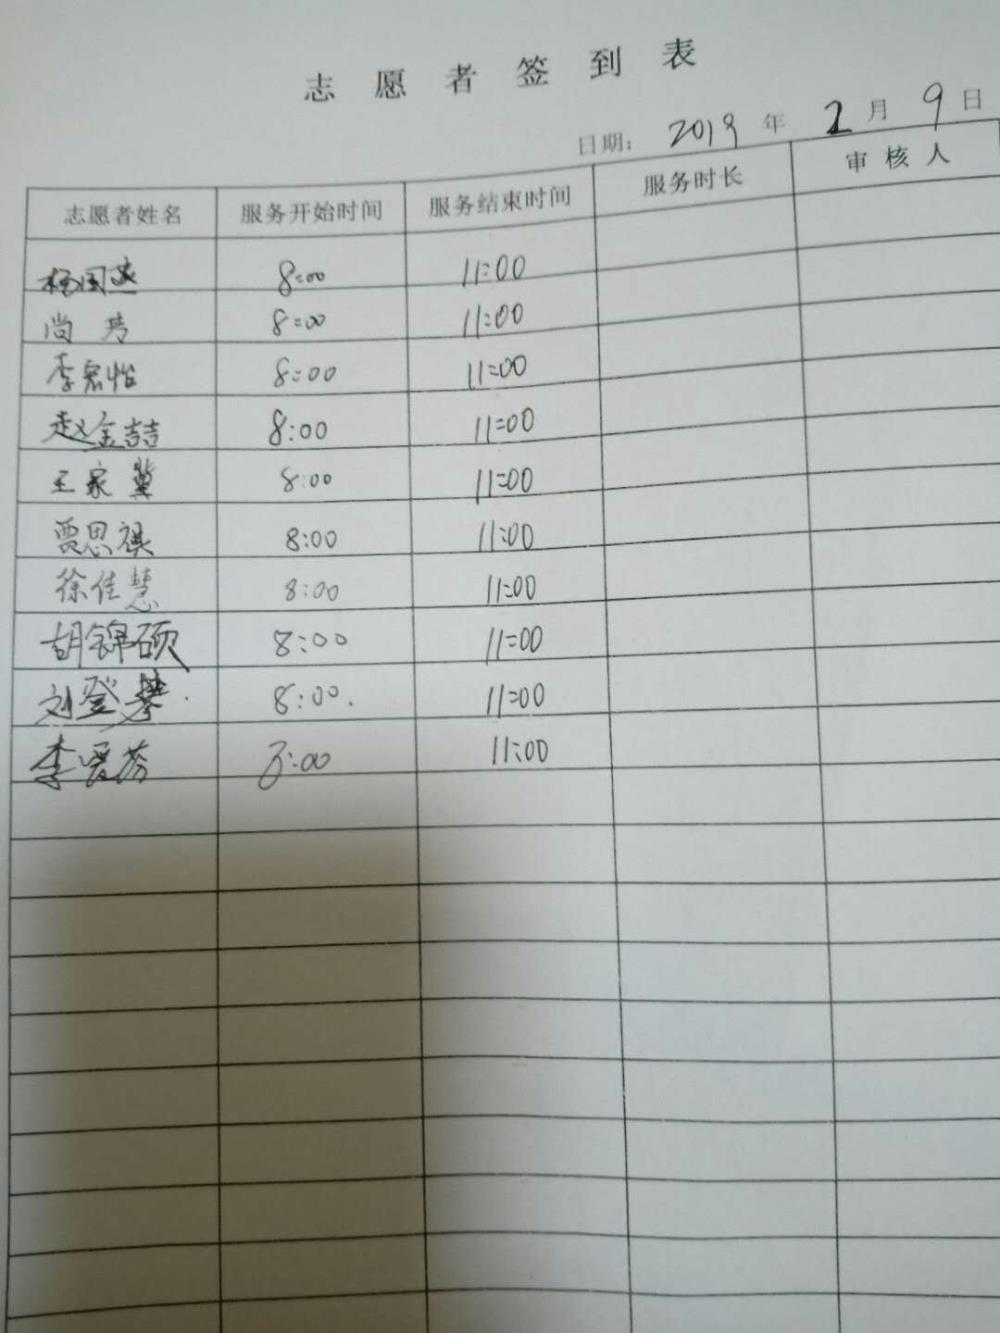 志愿者签到表
日期: 2019 年 2 月 9 日
志愿者姓名 服务开始时间 服务结束时间 服务时长 审核人
杨国 8:00 11:00
尚芳 8:00 11:00
李宏怡 8:00 11:00
赵金喆 8:00 11:00
王家冀 8:00 11:00
贾思祺 8:00 11:00
徐佳慧 8:00 11:00
胡锦硕 8:00 11:00
刘登攀 8:00 11:00
李爱芬 8:00 11:00